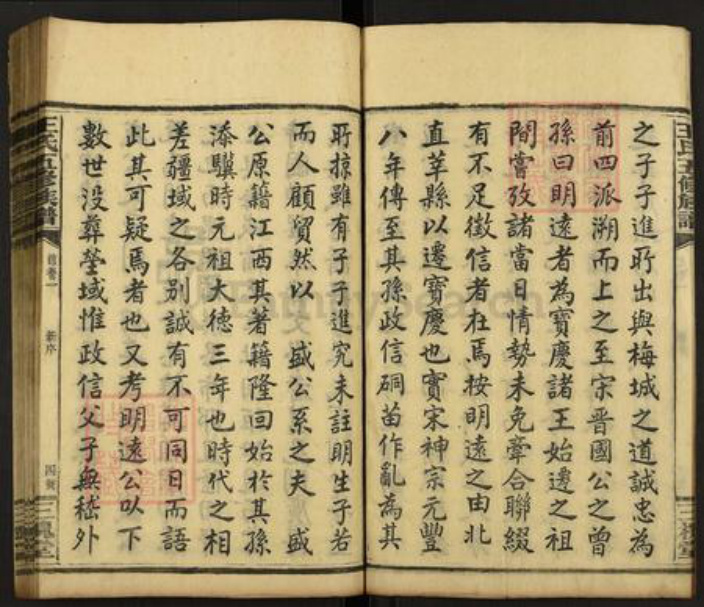 之子子進所出與梅城之道誠忠為
前四派溯而上之至宋晋國公之曾
孫曰明遠者為寶慶諸王始遷之祖
間嘗攷諸當日情勢未免牽合聯綴
有不足徵信者在焉按明遠之由北
直莘縣以遷寶慶也實宋神宗元豐
八年傳至其孫政信硐苗作亂為其
所掠雖有子子進究未註明生子若
而人顧貿然以 盛公系之夫 盛
公原籍江西其著籍隆回始於其孫
添驥時元祖大德三年也時代之相
差疆域之各別誠有不可同日而語
此其可疑焉者也又考明遠公以下
數世没葬塋域惟政信父子無嵇外
王氏五修族譜
首卷一
新序
四
三槐堂
王氏五修族譜
三槐堂
FamilySearch